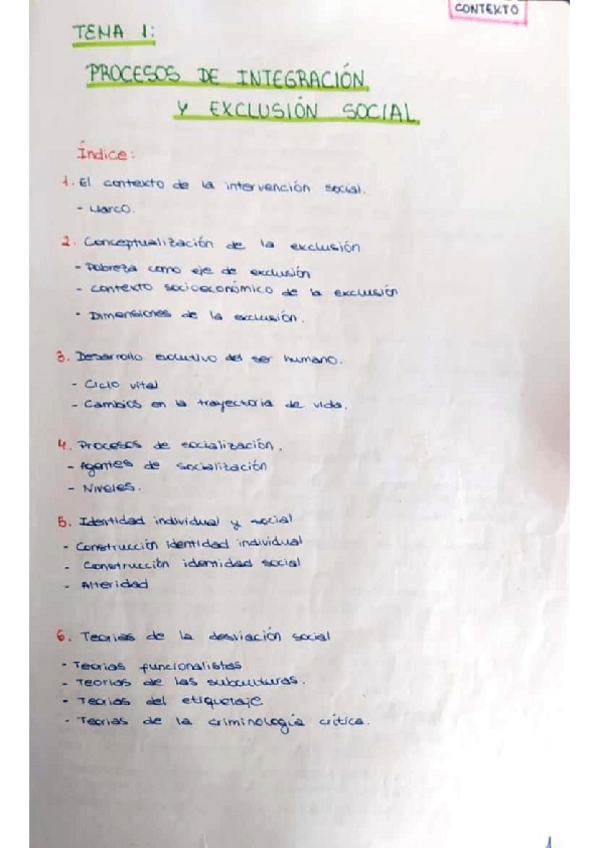 CONTEXTO
TEMA 1:
PROCESOS DE INTEGRACIÓN
Y EXCLUSIÓN SOCIAL
Índice:
1. El contexto de la intervención social.
- Marco.
2. Conceptualización de la exclusión
- Pobreza como eje de exclusión
- contexto socioeconómico de la exclusión
- Dimensiones de la exclusión.
3. Desarrollo evolutivo del ser humano.
- Ciclo vital
- Cambios en la trayectoria de vida.
4. Procesos de socialización.
- Agentes de socialización
- Niveles.
5. Identidad individual y social
- Construcción identidad individual
- Construcción identidad social
- Alteridad
6. Teorías de la desviación social
- Teorías funcionalistas
- Teorías de las subculturas.
- Teorías del etiquetaje
- Teorías de la criminología crítica.
1